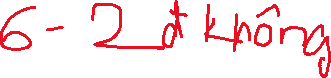 6-2 đt không